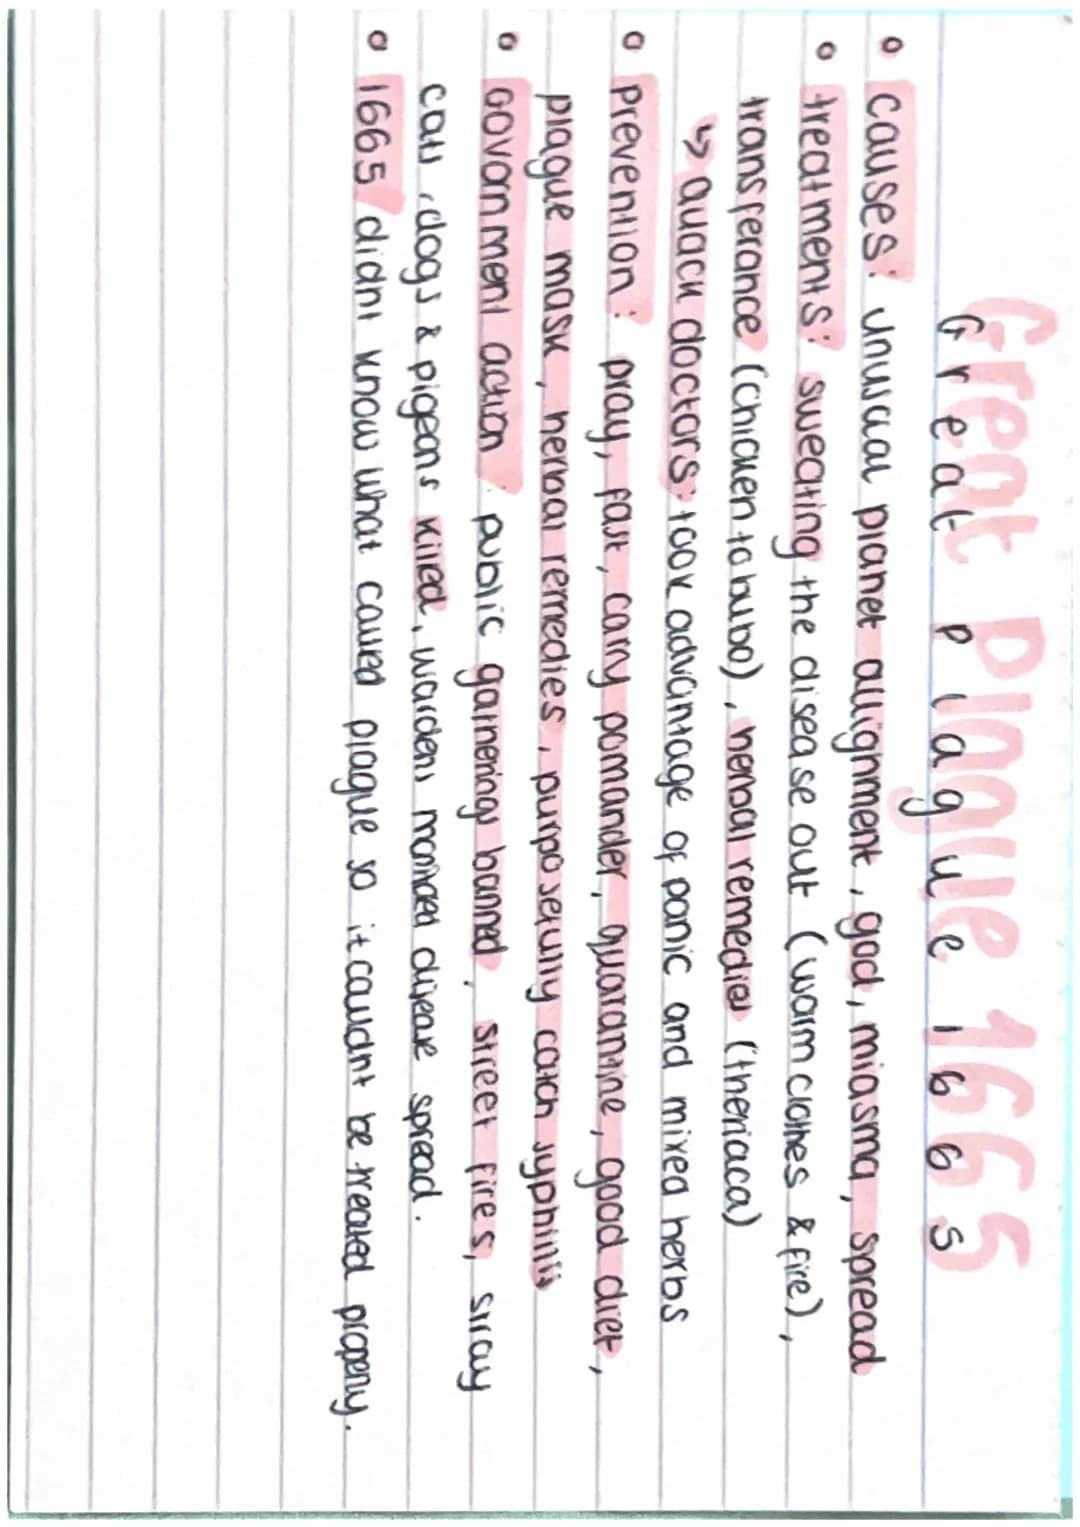 Great Plague 1665
• causes: unusual planet allignment, god, miasma, spread
• treatments: sweating the disease out (warm clothes & fire),
transferance (chicken to bubo), herbal remedies (theriaca)
↳ quack doctors: took advantage of panic and mixed herbs
• prevention: pray, fast, carry pomander, quarantine, good diet,
plague mask, herbal remedies, purposefully catch syphilis
• Govornment action: public gatherings banned, street fires, stray
cats, dogs & pigeons killed, wardens monitored disease spread.
• 1665 didnt know what caused plague so it couldnt be treated properly.